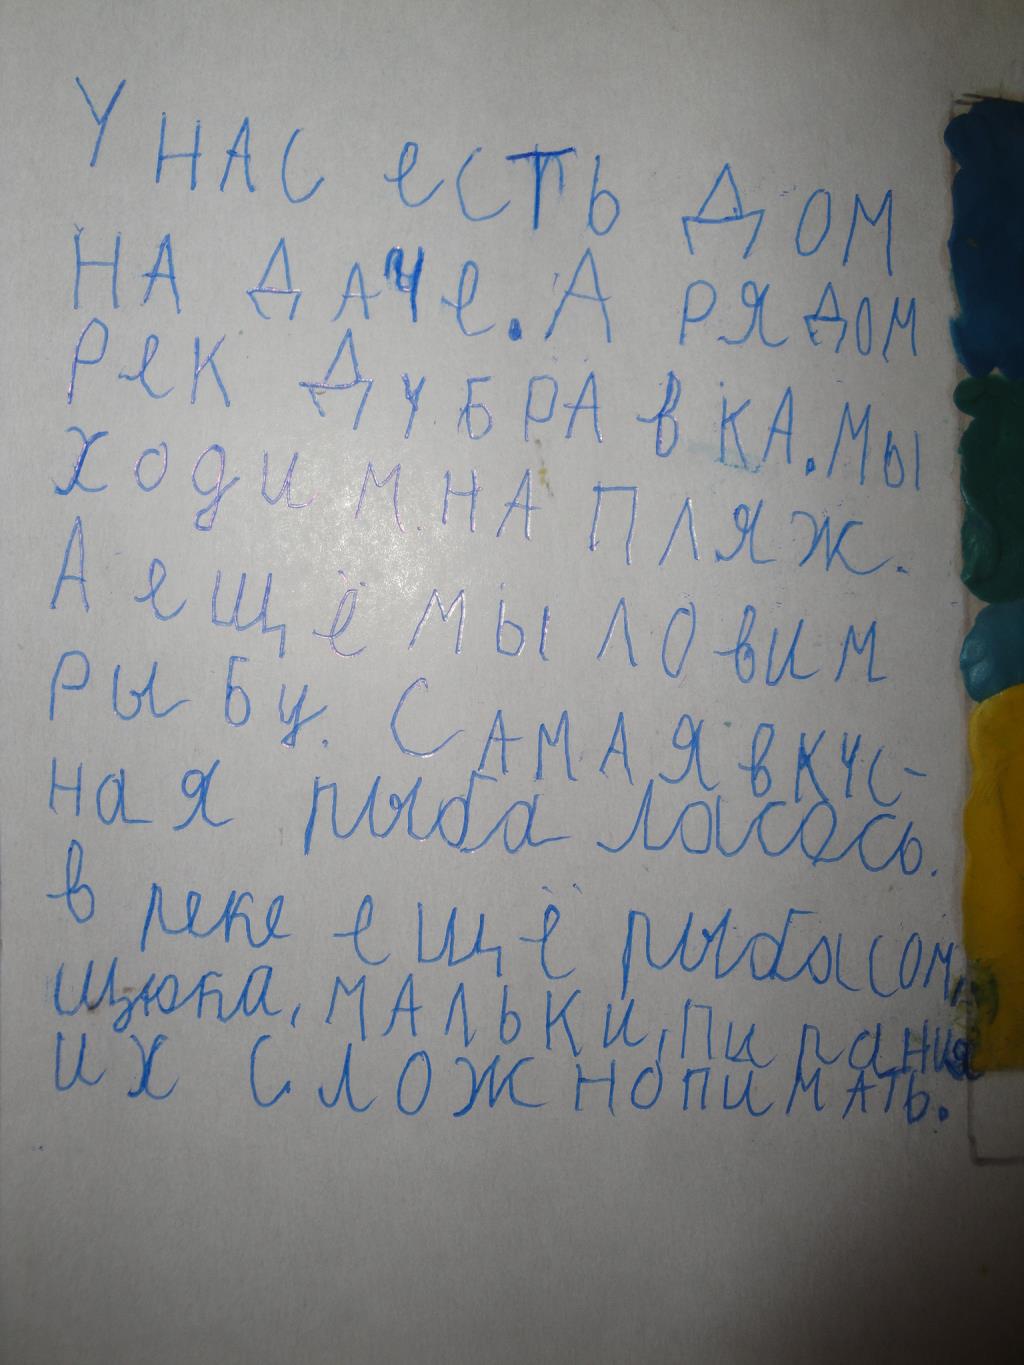 У НАС еСТЬ ДОМ
НА ДАЧе. А РЯДОМ
РеК ДУБРАВКА. МЫ
ХОДИМ НА ПЛЯЖ.
А еЩЁ МЫ ЛОВИМ
РЫБУ. САМАЯ ВКУС-
ная рыба лосось.
в реке ещё рыба сом,
щюка, МАЛЬКИ, пирания
ИХ СЛОЖНО ПИМАТЬ.